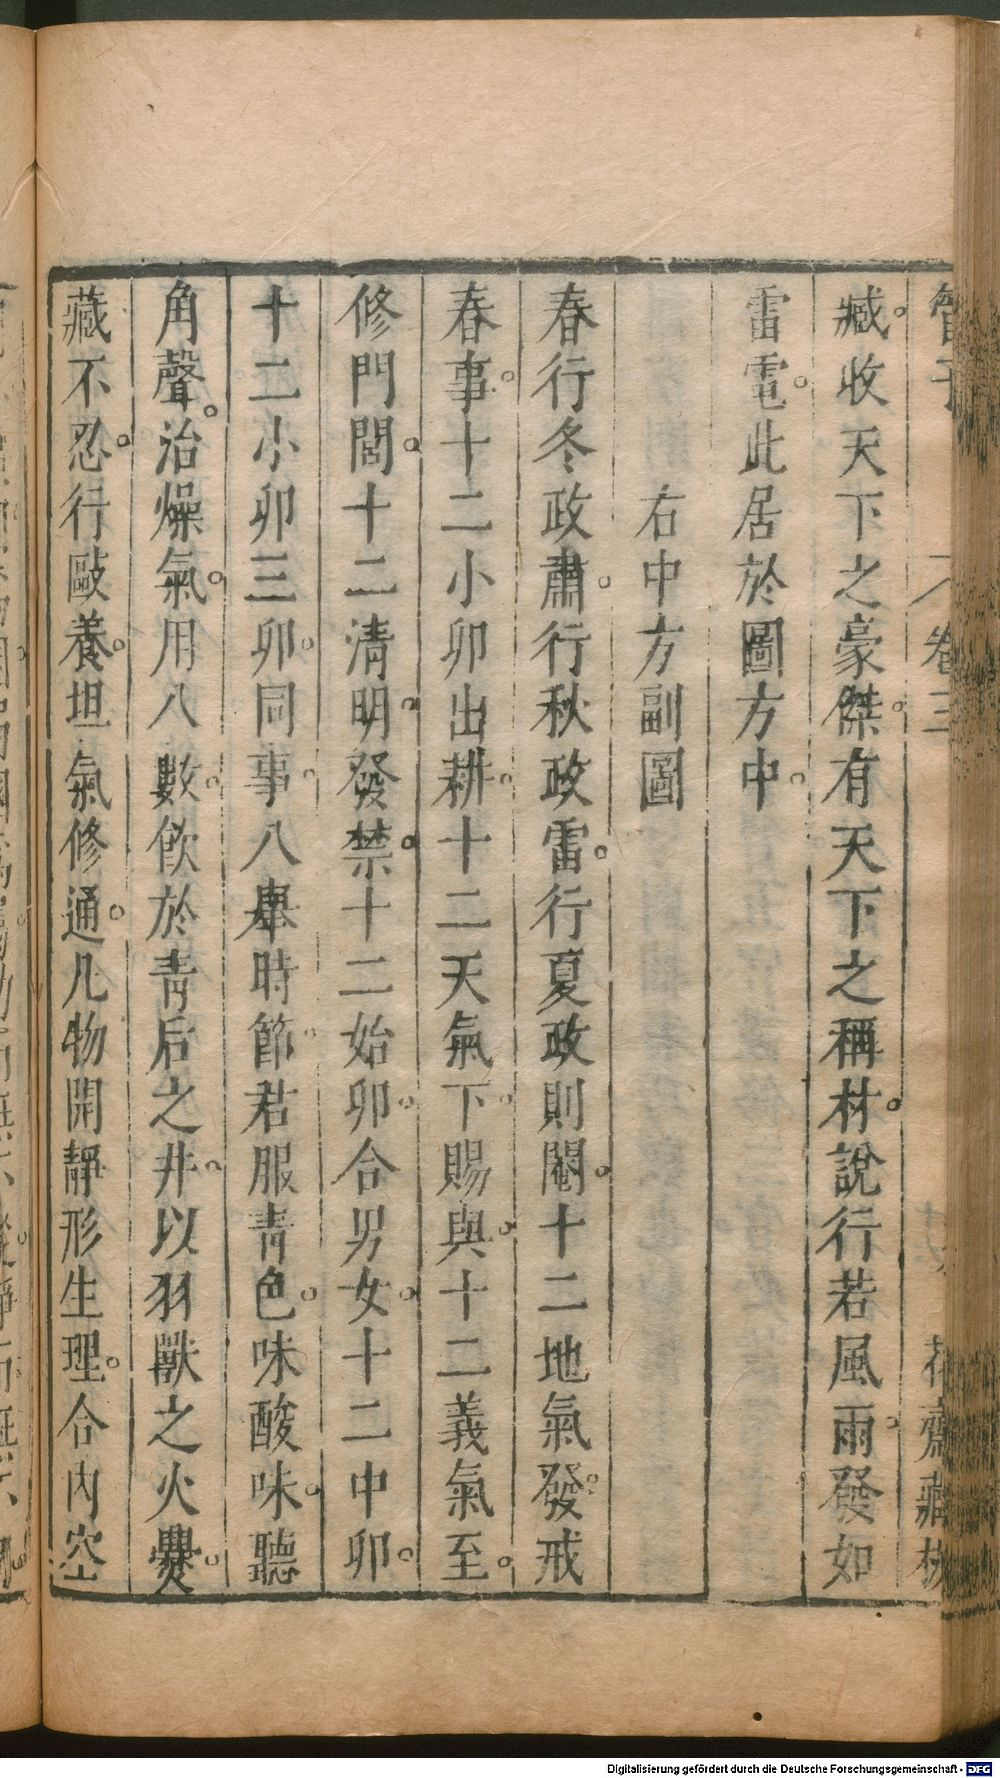 管子 卷三 十六 花齋藏板
臧收天下之豪傑有天下之稱材說行若風雨發如
雷電此居於圖方中
右中方副圖
春行冬政肅行秋政雷行夏政則閹十二地氣發戒
春事十二小卯出耕十二天氣下賜與十二義氣至
修門閭十二清明發禁十二始卯合男女十二中卯
十二小卯三卯同事八舉時節君服青色味酸味聽
角聲治燥氣用八數飲於青后之井以羽獸之火爨
藏不忍行敺養坦氣修通凡物開靜形生理合內空
Digitalisierung gefördert durch die Deutsche Forschungsgemeinschaft - DFG